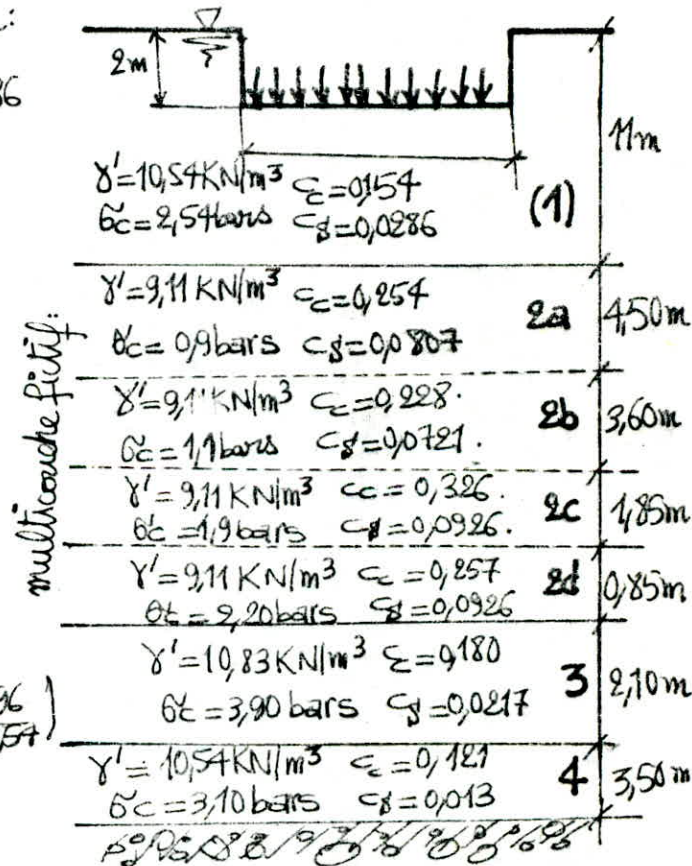 2m
11m
γ'=10,54KN/m³ Cc=0,154
σ'c=2,54bars Cs=0,0286
(1)
γ'=9,11 KN/m³ Cc=0,254
σ'c=0,9bars Cs=0,0807
2a 4,50m
multicouche fictif:
γ'=9,11 KN/m³ Cc=0,228.
σ'c=1,1bars Cs=0,0721.
2b 3,60m
γ'=9,11 KN/m³ Cc=0,326.
σ'c=1,9bars Cs=0,0926.
2c 1,85m
γ'=9,11 KN/m³ Cc=0,257
σ'c=2,20bars Cs=0,0926
2d 0,85m
γ'=10,83KN/m³ Cc=0,180
σ'c=3,90bars Cs=0,0217
3 2,10m
γ'=10,54KN/m³ Cc=0,121
σ'c=3,10bars Cs=0,013
4 3,50m